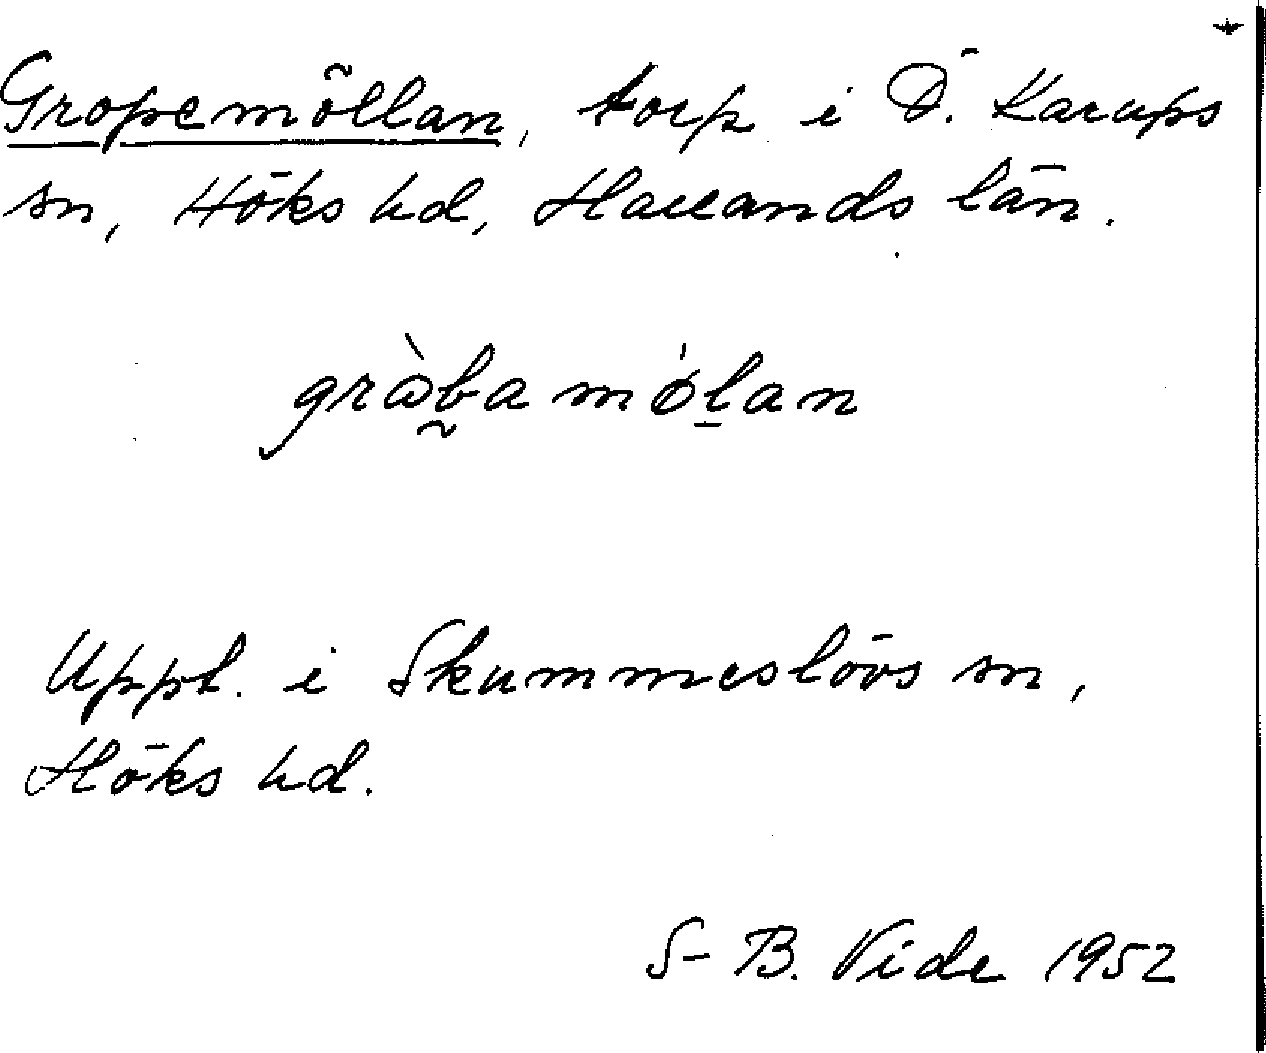 Gropemöllan, torp i Ö. Karups
sn, Höks hd, Hallands län.
gràb̰a mólan
Uppt. i Skummeslövs sn,
Höks hd.
S-B. Vide 1952